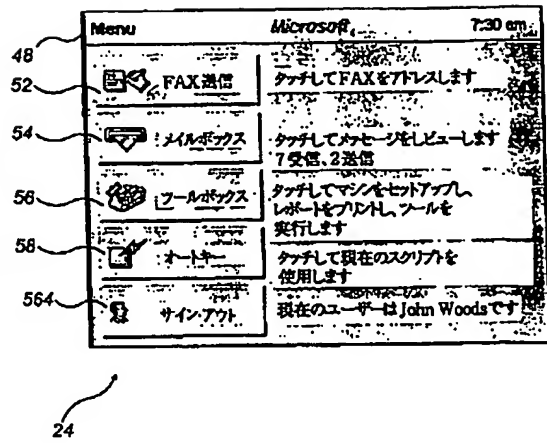 Menu Microsoft 7:30 am
48
52 FAX送信 タッチしてFAXをアドレスします
54 メイルボックス タッチしてメッセージをレビューします
7受信、2送信
56 ツールボックス タッチしてマシンをセットアップし、
レポートをプリントし、ツールを
実行します
58 オートキー タッチして現在のスクリプトを
使用します
564 サイン・アウト 現在のユーザーはJohn Woodsです
24